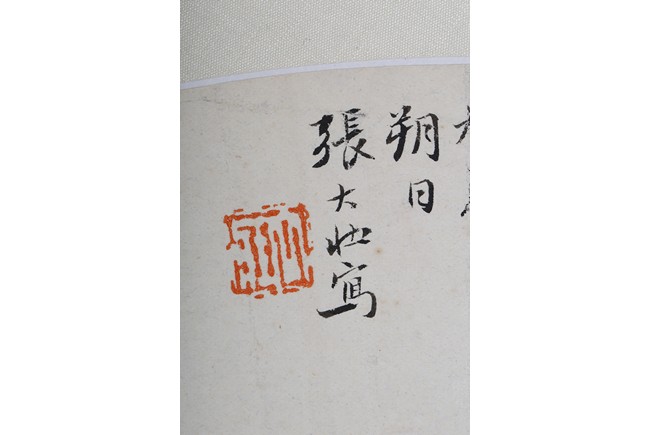 朔日
張大壯寫